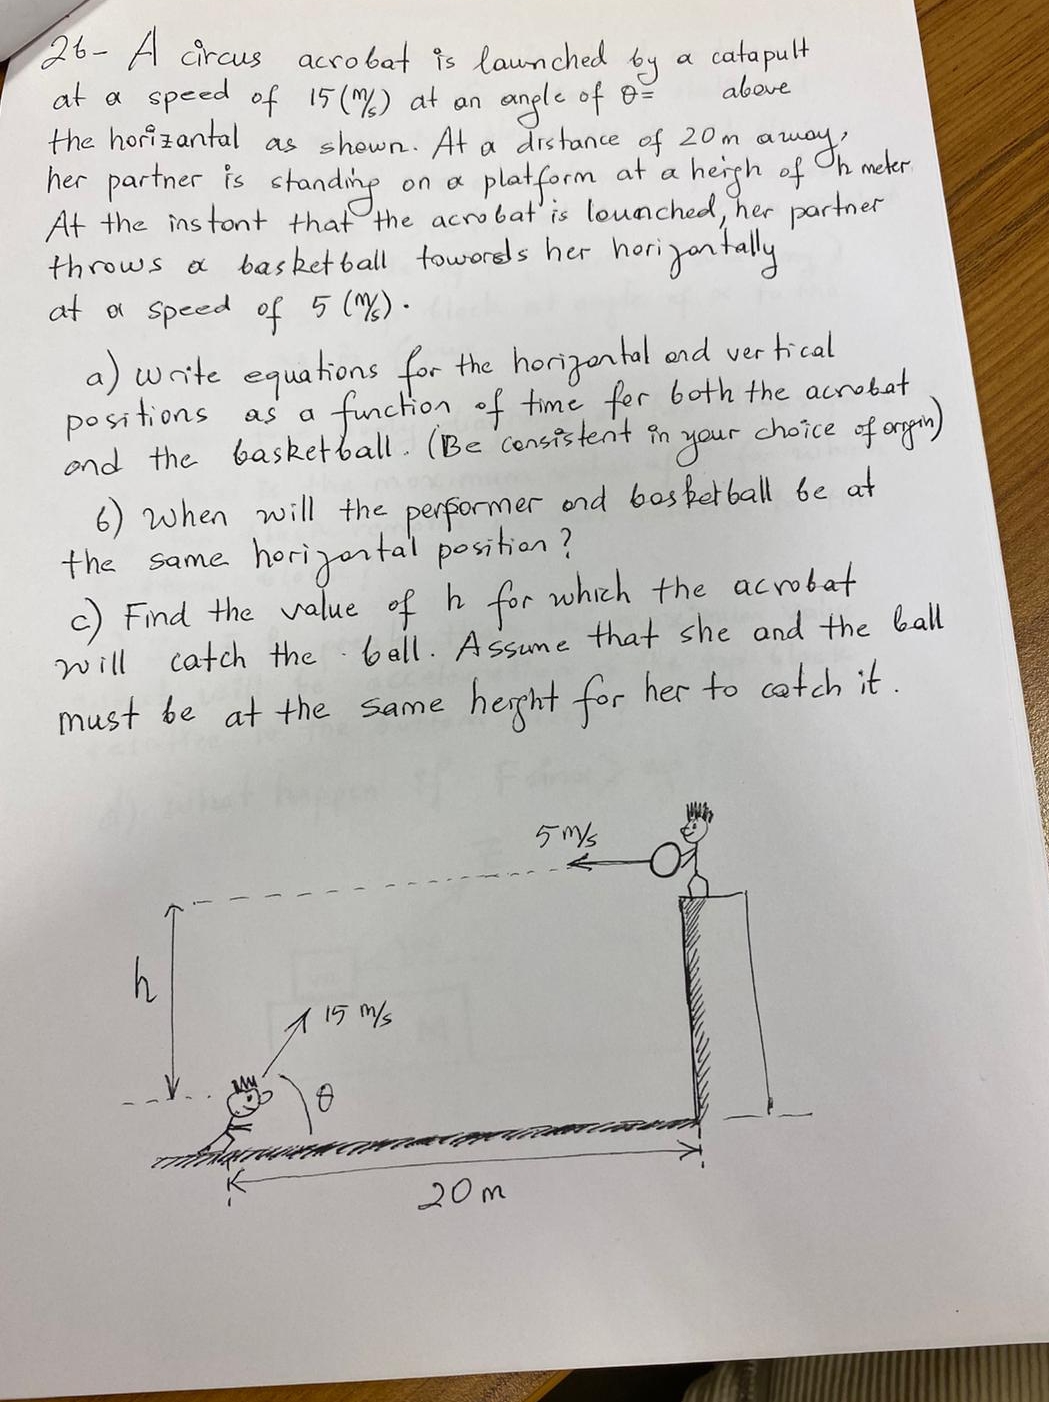 26- A circus acrobat is lawnched by a catapult
at a speed of 15 (m/s) at an angle of θ= above
the horizantal as shown. At a distance of 20m away,
her partner is standing on a platform at a heigh of h meter.
At the instont that the acrobat is lounched, her partner
throws a basketball towords her horizontally
at a speed of 5 (m/s).
a) write equations for the horizontal and vertical
positions as a function of time for both the acrobat
and the basketball. (Be consistent in your choice of orgin)
b) When will the performer and basketball be at
the same horizontal position?
c) Find the value of h for which the acrobat
will catch the ball. Assume that she and the ball
must be at the same height for her to catch it.
5 m/s
h
15 m/s
θ
20 m